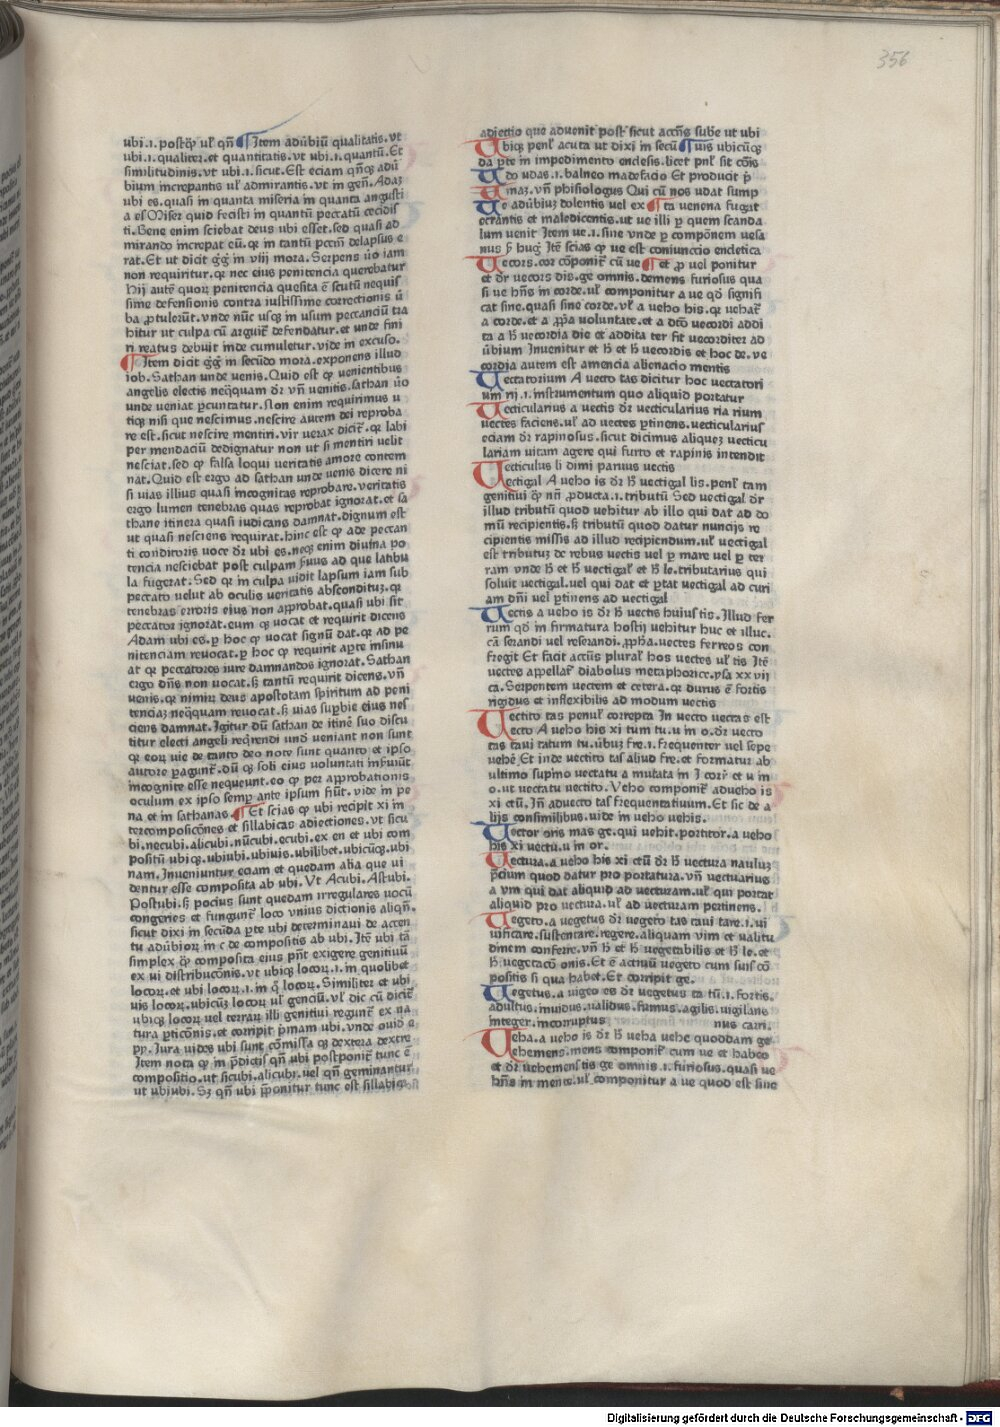 356
ubi.i.postq̄ꝫ ul' qn̄ ¶ Item adūbiū qualitatis.vt
ubi.i.qualiter.et quantitatis.vt ubi.i.quantū.Et
similitudinis.vt ubi.i.sicut.Est eciam qn̄qꝫ adū
bium increpantis ul' admirantis.vt in gen̄.Adaꝫ
ubi es.quasi in quanta miseria in quanta angusti
a es Miser quid fecisti in quantū peccatū cecidis
ti.Bene enim sciebat deus ubi esset.sed quasi ad
mirando increpat eū.qꝛ in tantū pccm̄ delapsus e
rat.Et ut dicit gḡ in vlij mora.Serpens ūo iam
non requiritur.qꝛ nec eius penitencia querebatur
Hij autē quoꝝ penitencia quesita ē scutū nequis
sime defensionis contra iustissime correctionis ū
ba ꝓtulerūt.vnde nūc usqꝫ in usum peccanciū tra
hitur ut culpa cū arguit᷑ defendatur.et unde fini
ri reatus debuit inde cumuletur.vide in excuso.
¶ Item dicit gḡ in secūdo mora.exponens illud
iob.Sathan unde venis.Quid est ꝙ venientibus
angelis electis neq̄quam dr̄ vn̄ venitis.sathan ūo
unde veniat ꝑcuntatur.Non enim requirimus u
tiqꝫ nisi que nescimus.nescire autem dei reproba
re est.sicut nescire mentiri.vir uerax dicit᷑.qꝛ labi
per mendaciū dedignatur non ut si mentiri uelit
nesciat.sed ꝙ falsa loqui veritatis amore contem
nat.Quid est ergo ad sathan unde venis dicere ni
si uias illius quasi incognitas reprobare.veritatis
ergo lumen tenebras quas reprobat ignorat.et sa
thane itinera quasi iudicans damnat.dignum est
ut quasi nesciens requirat.hinc est ꝙ ade peccan
ti conditoris uoce dr̄ ubi es.neqꝫ enim diuina po
tencia nesciebat post culpam ẜuus ad que latibu
la fugerat.Sed qꝛ in culpa uidit lapsum iam sub
peccato velut ab oculis veritatis absconditus.qꝛ
tenebras erroris eius non aꝓbat.quasi ubi sit
peccator ignorat.eum ꝙ uocat et requirit dicens
Adam ubi es.ꝑ hoc ꝙ uocat signū dat.qꝛ ad pe
nitenciam reuocat.ꝑ hoc ꝙ requirit aꝑte insinu
at qꝛ peccatores iure damnandos ignorat.Sathan
ergo dn̄s non uocat.ẜ tantū requirit dicens.vn̄
venis.qꝛ nimirꝝ deus apostotam spiritum ad peni
tenciaꝫ neq̄quam reuocat.ẜ uias suꝑbie eius nes
ciens damnat.Igitur dū sathan de itinē suo discu
titur electi angeli req̄rendi und veniant non sunt
qꝛ eoꝝ uie de tanto deo note sunt quanto et ipso
autore ꝑagunt᷑.dū qꝫ soli eius voluntati inẜuiūt
incognite esse nequeunt.eo ꝙ per aꝓbationis
oculum ex ipso semꝑ ante ipsum fiūt.vide in pe
na et in sathanas. ¶ Et scias ꝙ ubi recipit xi in
tercomposicōnes et sillabicas adiectiones.vt sicu
bi.necubi.alicubi.nūcubi.ecubi.ex en et ubi com
positū ubiqꝫ.ubiubi.ubiuis.ubilibet.ubicūqꝫ.ubi
nam.Inueniuntur eciam et quedam alia que ui
dentur esse composita ab ubi.Vt Acubi.Astubi.
Postubi.ẜ pocius sunt quedam irregulares uocū
congeries et fungunt᷑ loco vnius dictionis aliqn̄.
sicut dixi in secūda ꝑte ubi determinaui de accen
tu adūbioꝝ in c de compositis ab ubi.Itē ubi tā
simplex qꝫ composita eius pn̄t exigere genitiuū
ex ui distribucōnis.vt ubiqꝫ locoꝝ.i.in quolibet
locoꝝ.et ubi locoꝝ.i.in q̄ locoꝝ.Similiter et ubi
uis locoꝝ.ubicūqꝫ locoꝝ ul' genciū.Vl' dic cū dicit᷑
ubiqꝫ locoꝝ uel terraꝝ illi genitiui regunt᷑ ex na
tura ꝑticōnis.et corripit p̄mam ubi.vnde ouid e
pp.Iura uides ubi sunt cōmissa qꝫ dextera dextre
Item nota ꝙ in p̄dictis qn̄ ubi postponit᷑ tunc ē
compositio.ut sicubi.alicubi.uel qn̄ geminantur
ut ubiubi.Sꝫ qn̄ ubi p̄ponitur tunc est sillabica
adiectio que aduenit post᷑ sicut accn̄s sube ut ubi
Ubiqꝫ penl' acuta ut dixi in secū ¶ uis ubicūqꝫ
da ꝑte in impedimento enclesis.licet pnl' sit cōis
Udo udas.i.balneo madefacio Et producit p̄
maꝫ.vn̄ phisiologus Qui cū nos udat sump
Ue adūbiuꝫ dolentis uel ex ¶ ta uenena fugat
ecrantis et maledicentis.ut ue illi ꝑ quem scanda
lum venit Item ue.i.sine vnde ꝑ compōnem uesa
nus ẜ hug̓ Itē scias ꝙ ue est coniunccio encletica
Uecors.cor cōponit᷑ cū ue ¶ et ꝓ uel ponitur
et dr̄ uecors dis.ge omnis.demens furiosus qua
si ue hn̄s in corde.ul' componitur a ue qd̓ signifi
cat sine.quasi sine corde.Vl' a ueho his.qꝛ uehat᷑
a corde.et a ꝓpa voluntate.et a dc̄o uecordi addi
ta a h̄ uecordia die et addita ter fit uecorditer ad
ūbium Inuenitur et h̄ et h̄ uecordis et hoc de.ve
cordia autem est amencia alienacio mentis
Uectatorium A vecto tas dicitur hoc vectatori
um rij.i.instrumentum quo aliquid portatur
Uecticularius a uectis dr̄ uecticularius ria rium
uectes faciens.ul' ad uectes ꝑtinens.uecticularius
eciam dr̄ rapinosus.sicut dicimus aliqueꝫ uecticu
lariam uitam agere qui furto et rapinis intendit
Uecticulus li dimi paruus uectis
Uectigal A ueho is dr̄ h̄ uectigal lis.penl' tam
genitiui qꝫ nn̄ ꝓducta.i.tributū Sed uectigal dr̄
illud tributū quod uehitur ab illo qui dat ad do
mū recipientis.ẜ tributū quod datur nuncijs re
cipientis missis ad illud recipiendum.ul' uectigal
est tributuꝫ de rebus uectis uel ꝑ mare uel ꝑ ter
ram vnde h̄ et h̄ uectigal' et h̄ le.tributarius qui
soluit uectigal.uel qui dat et ꝑtat vectigal ad curi
am dn̄i uel ꝑtinens ad uectigal
Uectis a ueho is dr̄ h̄ uectis huius tis.Illud fer
rum qd̓ in firmatura hostij uehitur huc et illuc.
cā serandi uel reserandi.ꝓpha.uectes ferreos con
fregit Et facit accūs plural' hos uectes ul' tis Itē
uectes appellat᷑ diabolus metaphorice.ysa xx vij
ca.Serpentem uectem et cetera.qꝛ durus ē fortis
rigidus et inflexibilis ad modum uectis
Uectito tas penul' correpta In vecto vectas est
ecto A ueho his xi tum tu.u in o.dr̄ uecto
tas taui tatum tu.ūbuꝫ fre.i.frequenter uel sepe
uehē Et inde uectito tas aliud fre.et formatur ab
ultimo supino uectatu a mutata in I corr̄ et u in
o.ut uectatu uectito.Veho componit᷑ adueho is
xi ctū.In̄ aduecto tas frequentatiuum.Et sic de a
lijs consimilibus.uide in ueho uehis.
Uector oris mas ge.qui uehit.portitor.a ueho
his xi vectu.u in or.
Uectura.a ueho his xi ctū dr̄ h̄ vectura nauluꝫ
p̄cium quod datur pro portatura.vn̄ vectuarius
a vm qui dat aliquid ad uecturam.ul' qui portat
aliquid pro uectura.ul' ad uecturam pertinens.
Uegeto.a uegetus dr̄ uegeto tas taui tare.i.ui
uificare.sustentare.regere.aliquam vim et ualitu
dinem conferre.vn̄ h̄ et h̄ uegetabilis et h̄ le.et
h̄ uegetacō onis.Et ē actiuū uegeto cum suis cō
positis si qua habet.Et corripit ge.
Uegetus.a uigeo es dr̄ uegetus ta tū.i.fortis.
adultus.inuidus.ualidus.fumus.agilis.uigilans
integer.incorruptus nus carri.
Ueha.a ueho is dr̄ h̄ ueha uehe quoddam ge
Uehemens.mens componit᷑ cum ue et habeo
et dr̄ uehemens tis ge omnis.i.furiosus.quasi ue
hn̄s in mente.ul' componitur a ue quod est sine
Digitalisierung gefördert durch die Deutsche Forschungsgemeinschaft - DFG